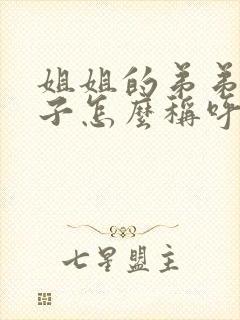 姐姐的弟弟
子怎麼稱呼
七星盟主